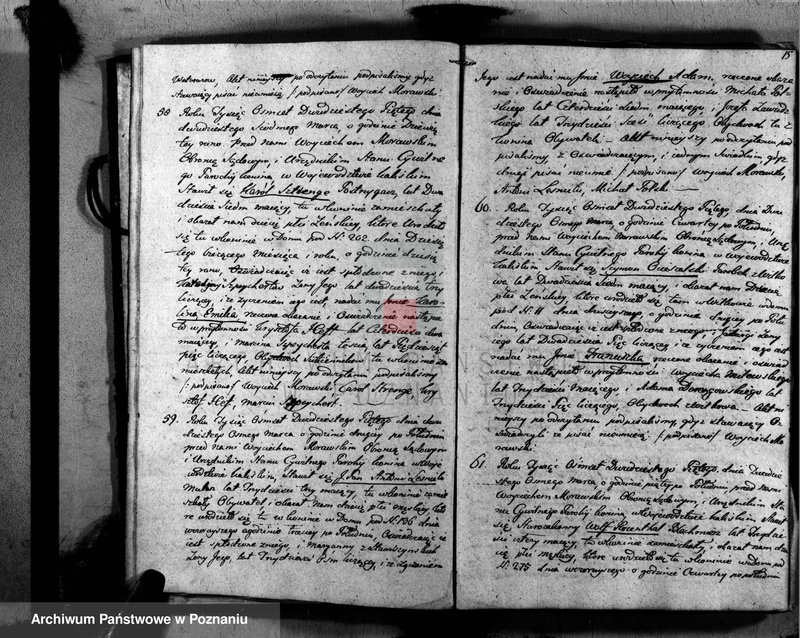 Wtatmarow, Akt niniejszy po odczytaniu podpisaliśmy gdyż
Stawający pisać nieumieią / podpisano / Woyciech Morawski
58 Roku Tysiąc Ośmset Dwudziestego Piątego dnia
dwudziestego Siódmego Marca, o godzinie Dziewią
tey rano. Przed nami Woyciechem Morawskim
Obrońcą Sądowym, i Urzędnikiem Stanu Cywilne
go Parochij konina w Woiewodztwie kaliskim
Stawił się Karól Schtenge Postrzygacz, lat Dwa
dzieścia Siedm maiący, tu w koninie zamieszkały
i okazał nam dziecię płci Żeńskiey, które urodziło
się tu w koninie w Domu pod N: 202. dnia Dziesią
tego bieżącego miesiąca i roku, o godzinie dziesią
tey rano, Oświadczaiąc iż iest spłodzone z niego i
Szpychortów Żony Jego lat dwadzieścia trzy
liczącey, i że życzeniem ego iest, nadać mu Imie Karo-
lina Emilia rzeczone okazanie i Oświadczenie nastąpiło
w przytomności Krysztofa Hoff lat Czterdzieści dwa
maiący, i Marcina Szpychorta teścia lat Pięćdziesiąt
pięć liczącego, Obydwóch Sukienników tu w koninie za
mieszkałych, Akt niniejszy po odczytaniu podpisaliśmy
/ podpisano / Woyciech Morawski Carol Stenge, Kry
sztof Hoff, Marcin Szpychort.
59. Roku Tysiąc Ośmset Dwudziestego Piątego dnia dwu
dziestego Ósmego Marca o godzinie drugiey po Południu
przed nami Woyciechem Morawskim Obrońcą Sądowym
i Urzędnikiem Stanu Cywilnego Parochij konina w Woje
wództwie kaliskim, Stawił się Jan Antoni
lat Trzydzieści trzy maiący, tu w koninie zamie
szkały Obywatel i okazał nam dziecię płci męskiey, któ
re urodziło się tu w koninie w Domu pod N: 196 dnia
wczorayszego o godzinie trzeciey po Południu, Oświadczaiąc iż
iest spłodzone z niego, i Maryanny z
Żony Jego, lat Trzydzieści Ośm liczącey, i że życzeniem
15
Jego iest nadać mu Imie Woyciech Adam, rzeczone okaza
nie i Oświadczenie nastąpiło w przytomności Michała
lat Czterdzieści siedm maiącego, i Józefa
lat Trzydzieści Sześć liczącego Obydwóch tu z
konina Obywateli - Akt niniejszy po odczytaniu po
dpisaliśmy z Oświadczaiącym, i iednym świadkiem, gdyż
drugi pisać nieumie / podpisano / Woyciech Morawski,
Antoni Michał
60. Roku Tysiąc Ośmset Dwudziestego Piątego, dnia Dwu
dziestego Ósmego Marca, o godzinie Czwartey po Południu,
przed nami Woyciechem Morawskim Obrońcą Sądowym, i Urzę
dnikiem Stanu Cywilnego Parochij konina, w Woiewodztwie
kaliskim Stawił się Szymon Parobek z
lat Dwadzieścia Siedm maiący, i okazał nam Dziecię
płci Żeńskiey, które urodziło się tam w domu
pod N: 11 dnia dzisieyszego, o godzinie drugiey po Połu
dniu, Oświadczaiąc iż iest spłodzone z niego i Jadwigi Żony
Jego lat Dwadzieścia Pięć liczącey i że życzeniem ego iest
nadać mu Imie Franciszka rzeczone okazanie i oświad
czenie nastąpiło w przytomności Woyciecha
lat Trzydzieści maiącego, i Adama lat
Trzydzieści Pięć liczącego, Obydwóch - Akt ni
niejszy po odczytaniu podpisaliśmy, gdyż stawaiący
pisać nieumieią / podpisano / Woyciech Mo
rawski
61. Roku Tysiąc Ośmset Dwudziestego Piątego, dnia Dwudzie
stego Ósmego Marca, o godzinie piątey po Południu przed nami
Woyciechem Morawskim Obrońcą Sądowym, i Urzędnikiem Sta
nu Cywilnego Parochij konina, w Woiewodztwie kaliskim Stawił
się Starozakonny Wolff Rozenthal lat Trzydzie
ści cztery maiący tu w koninie zamieszkały, i okazał nam dzie
cię płci męskiey, które urodziło się tu w koninie w Domu pod
N: 275 dnia wczorayszego o godzinie Czwartey po południu
Archiwum Państwowe w Poznaniu